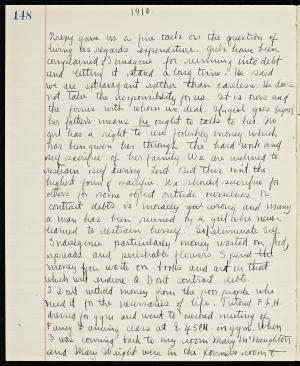 148
1910
Prexy gave us a fine talk on the question of
living as regards expenditure. Girls have been
complained of I imagine for running into debt
and letting it stand a long time. He said
we are extravagant rather than careless. He does
not take the responsibility for us it is ours and
the firms with whom we deal. If a girl goes beyond
her father's means he ought to talk to her. No
girl has a right to use foolishly money which
has been given her through the hard work and
self sacrifice of her family. We are inclined to
restrain self during Lent but this isn't the
highest form of sacrifice. We should sacrifice for
others for some object outside ourselves. To
contract debts is morally wrong and many
a man has been ruined by a girl who never
learned to restrain herself. So eliminate self
indulgence particularly money wasted on food,
spreads and perishable flowers. Spend the
money you waste on books and art on that
which will endure. Q. D out contract debt.
I. D out withold money from the poor people who
need it for the necessaries of life. I stood F. L. H.
dressed for gym and went to second meeting of
Fancy Dancing class at 8.45 PM in gym. When
I was coming back to my room Mary McNaughton
and Mary Wright were in the